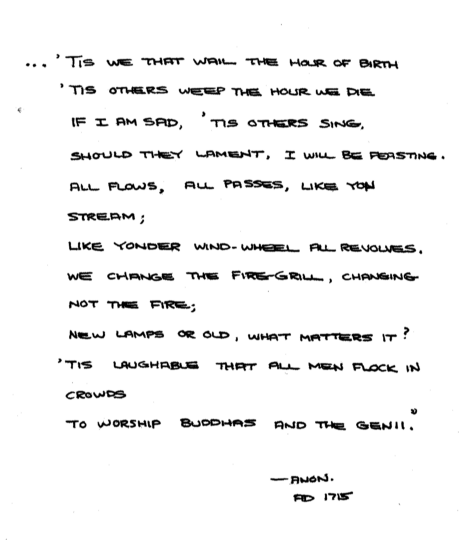 ... 'TIS WE THAT WAIL THE HOUR OF BIRTH
'TIS OTHERS WEEP THE HOUR WE DIE
IF I AM SAD, 'TIS OTHERS SING,
SHOULD THEY LAMENT, I WILL BE FEASTING.
ALL FLOWS, ALL PASSES, LIKE YON
STREAM;
LIKE YONDER WIND-WHEEL ALL REVOLVES,
WE CHANGE THE FIRE-GRILL, CHANGING
NOT THE FIRE;
NEW LAMPS OR OLD, WHAT MATTERS IT?
'TIS LAUGHABLE THAT ALL MEN FLOCK IN
CROWDS
TO WORSHIP BUDDHAS AND THE GENII."
—ANON.
AD 1715